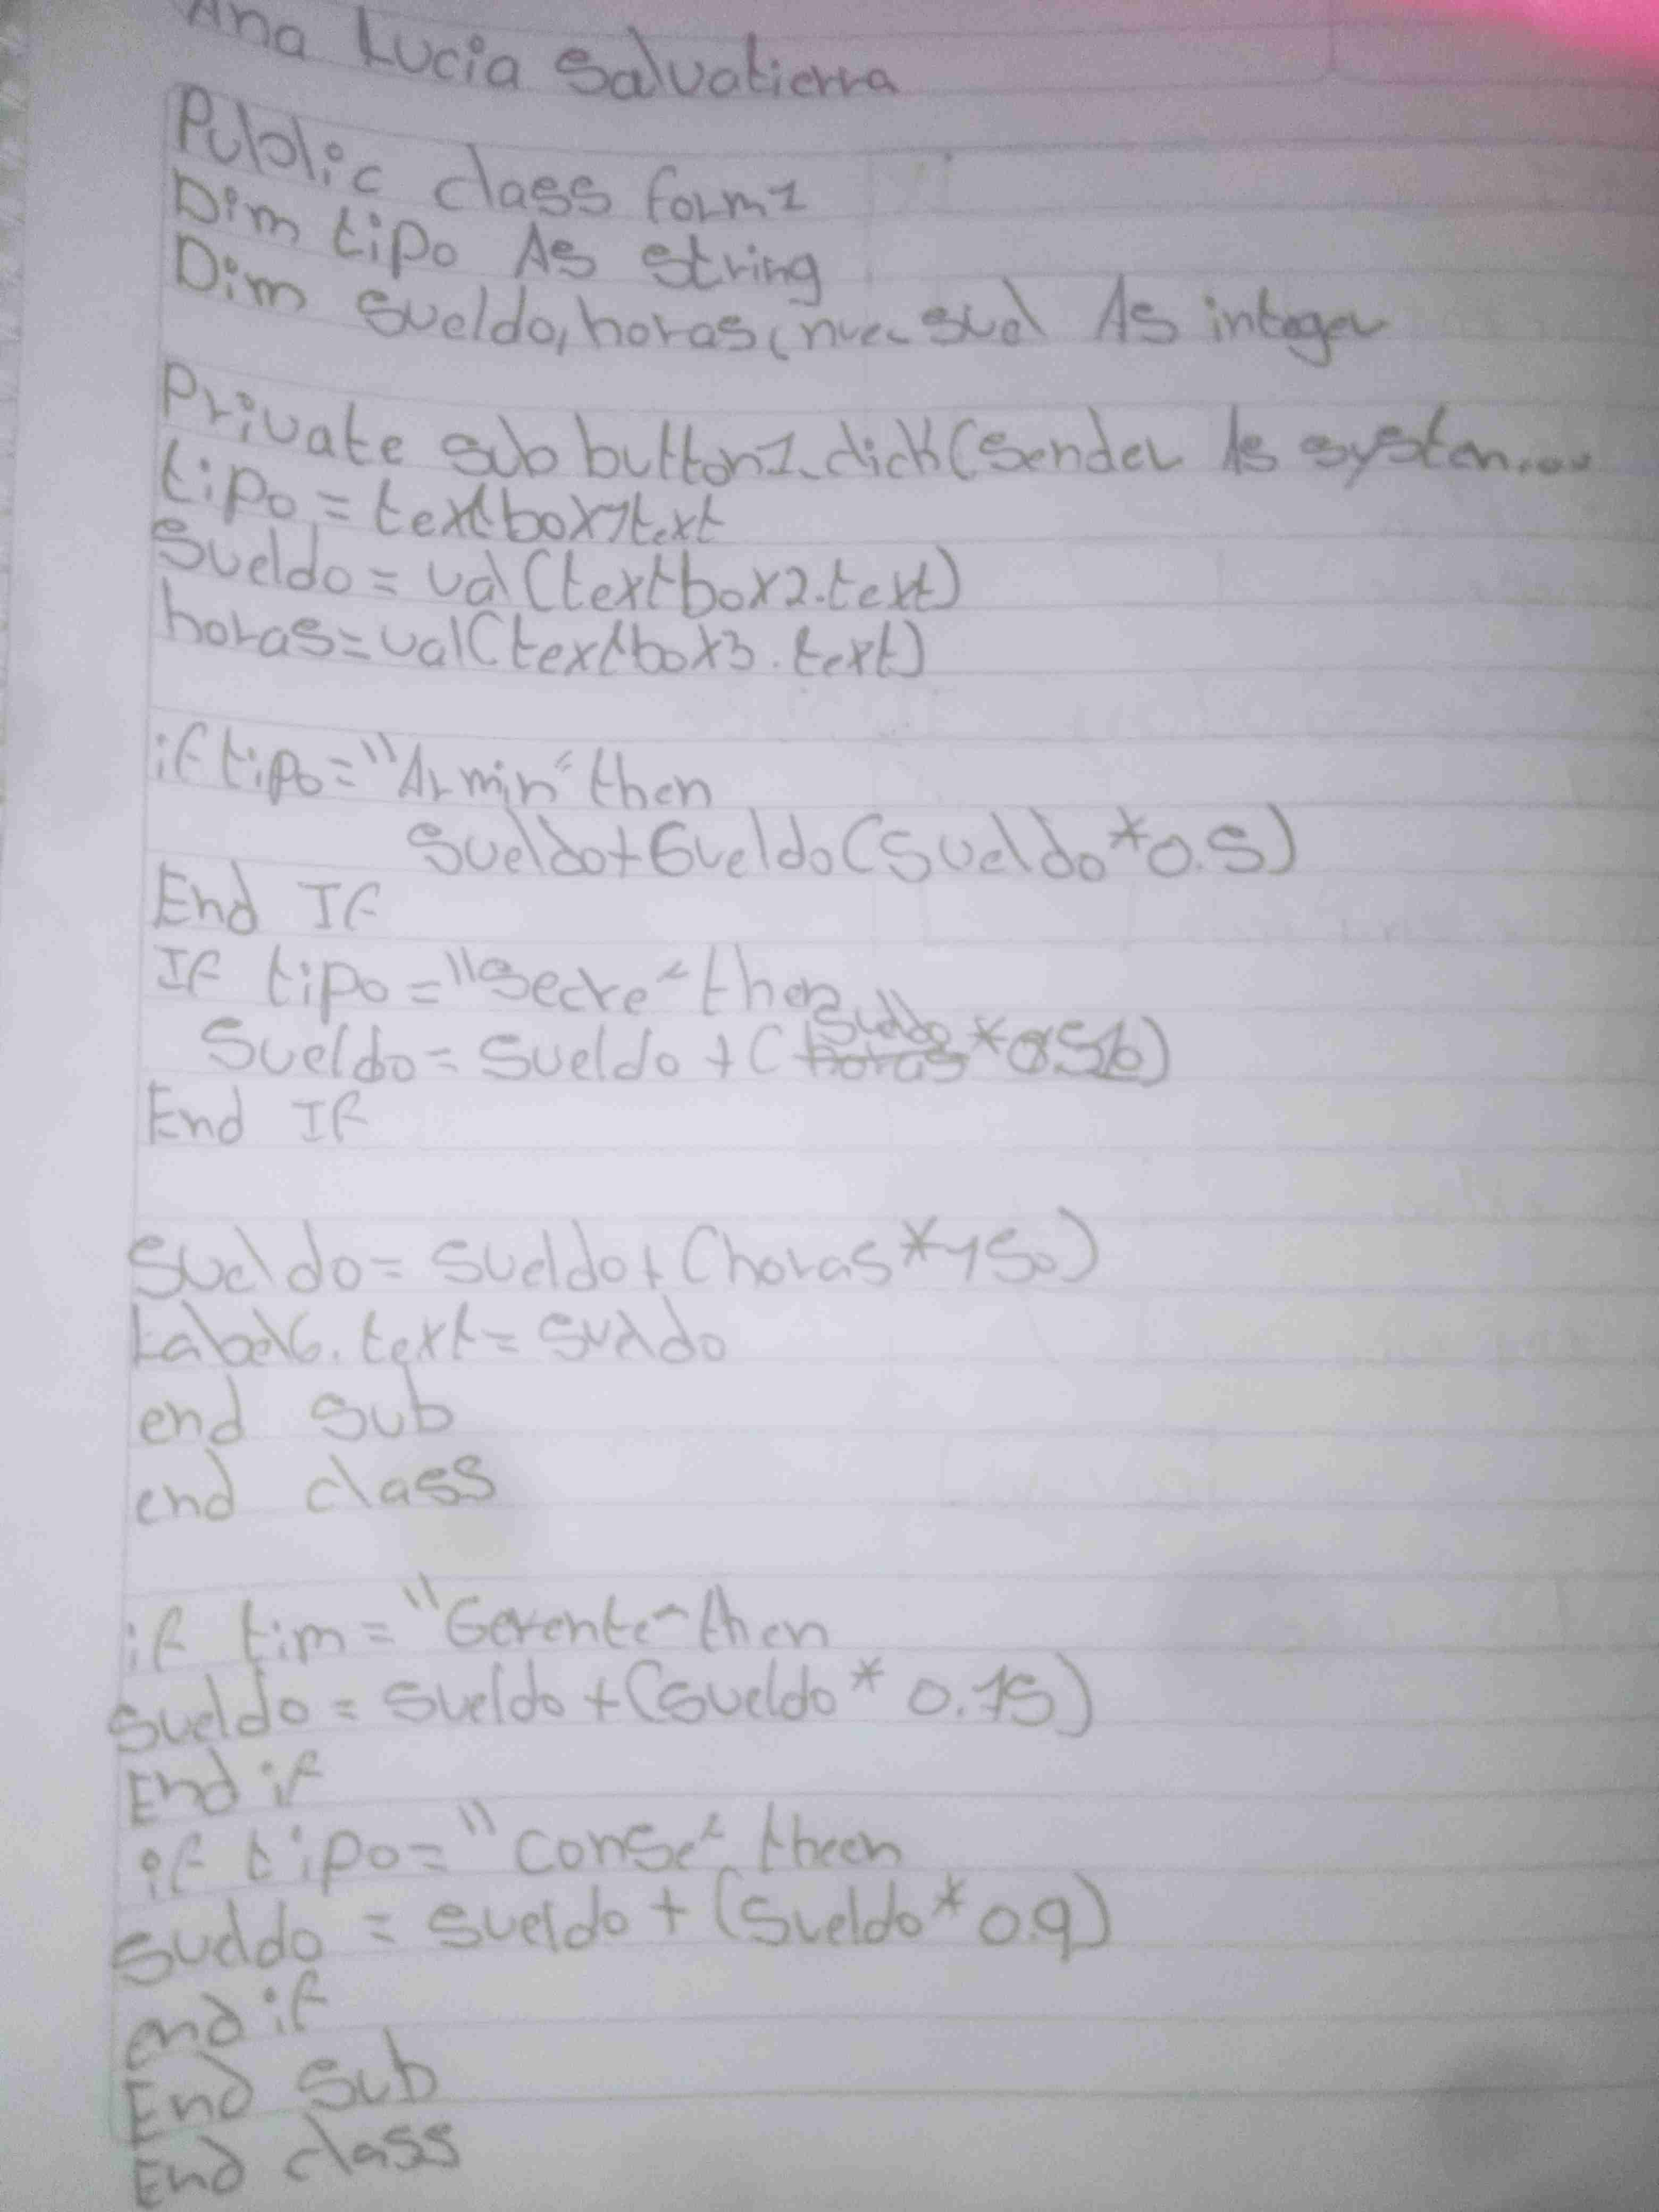 Ana Lucia Salvatierra
Public class form1
Dim tipo As string
Dim sueldo, horas, nue_sud As integer
Private sub button1_click(sender As system....
tipo = textbox1text
Sueldo = val(textbox2.text)
horas=val(textbox3.text)
if tipo="Armin" then
Sueldo+Sueldo(Sueldo*0.5)
End If
If tipo="Secre" then
Sueldo= Sueldo + (sueldo *
End If
Sueldo= Sueldo+ (horas*150)
Label6.text= sueldo
end sub
end class
if tim= "Gerente" then
sueldo = sueldo +(sueldo * 0.15)
End if
if tipo= "conse" theen
sueldo = sueldo + (Sueldo*0.9)
end if
End Sub
End class